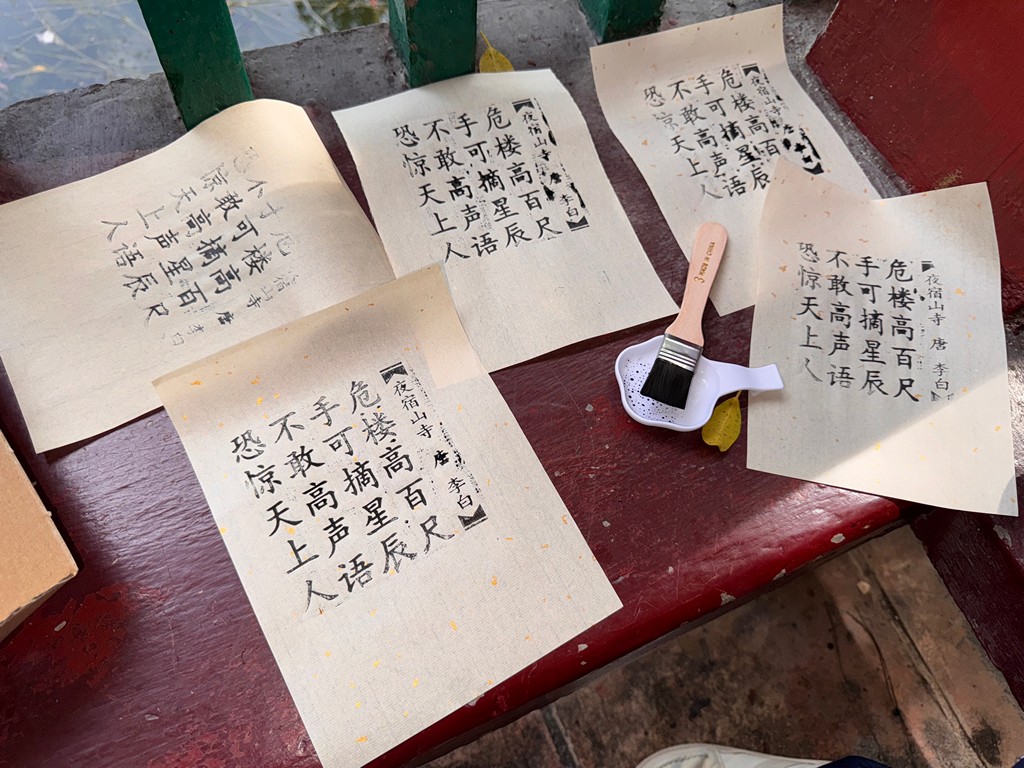 夜宿山寺 唐 李白
危楼高百尺
手可摘星辰
不敢高声语
恐惊天上人
夜宿山寺 唐 李白
危楼高百尺
手可摘星辰
不敢高声语
恐惊天上人
夜宿山寺 唐
危楼高百
手可摘星辰
不敢高声语
恐惊天上
夜宿山寺 唐 李白
危楼高百尺
手可摘星辰
不敢高声语
恐惊天上人
宿山寺 唐 李白
危楼高百尺
可摘星辰
敢高声语
恐惊天上人